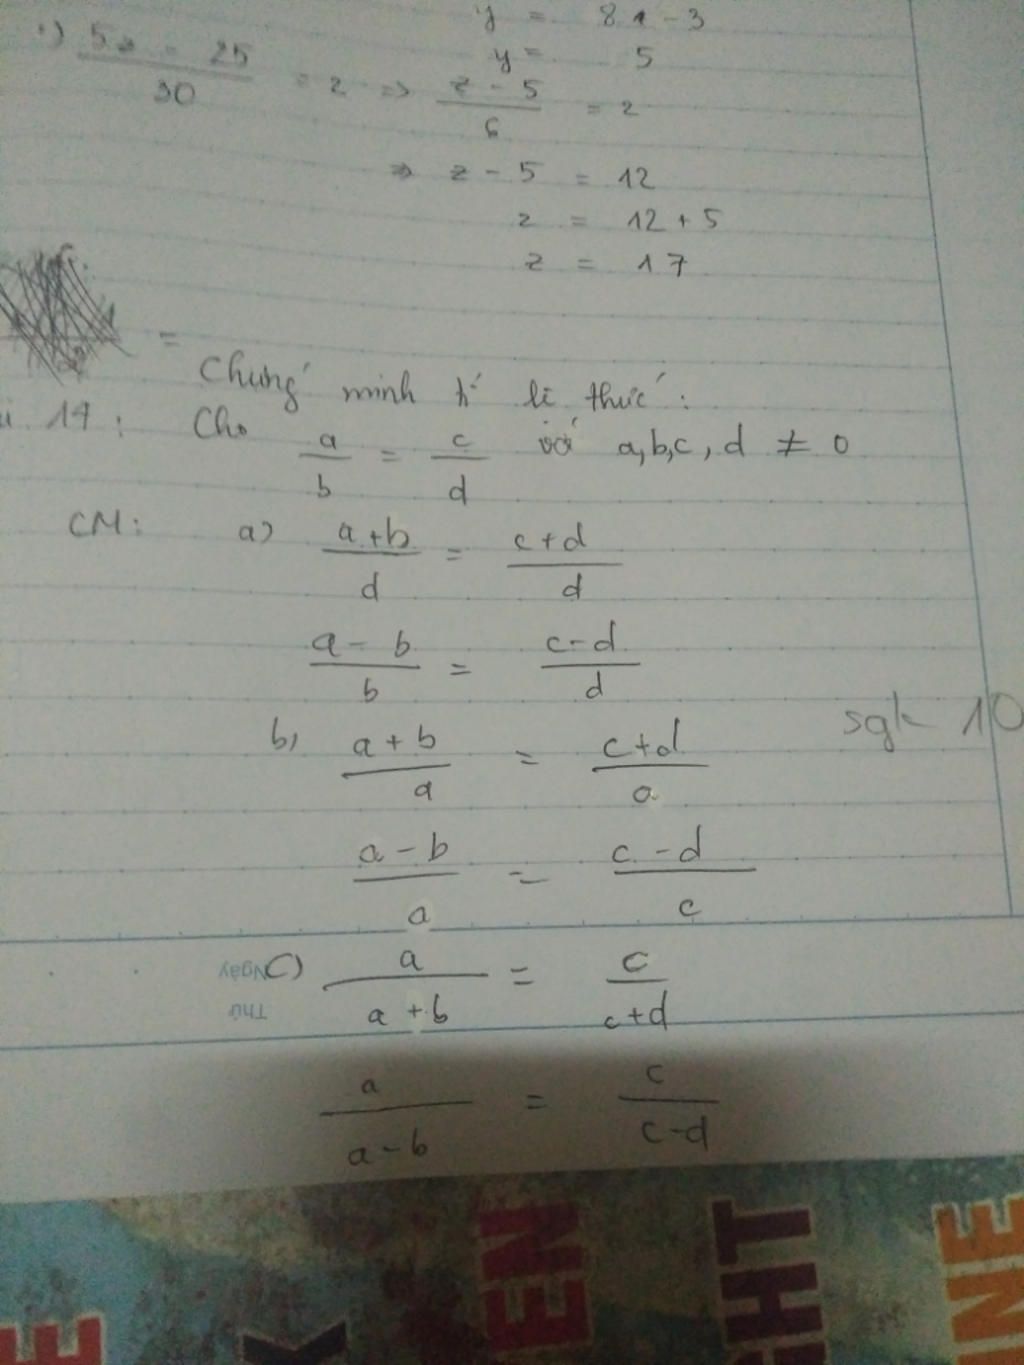 y = 81 - 3
y = 5
5z - 25 / 30 = 2 => z - 5 / 6 = 2
=> z - 5 = 12
z = 12 + 5
z = 17
=
Chứng minh tỉ lệ thức:
17: Cho a/b = c/d với a,b,c,d ≠ 0
CM: a) a+b/d = c+d/d
a-b/b = c-d/d
sgk 10
b, a+b/a = c+d/a
a-b/a = c-d/c
Ngày
c) a/a+b = c/c+d
Thứ
a/a-b = c/c-d
E
K
EN
GHT
INE